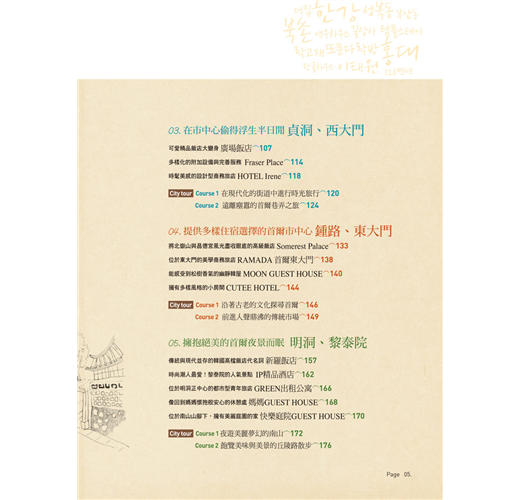 북촌 한강 성북동
템플스테이
이태원 홍대
03. 在市中心偷得浮生半日閒 貞洞、西大門
可愛精品飯店大變身 廣場飯店⌒107
多樣化的附加設備與完善服務 Fraser Place⌒114
時髦美感的設計型商務旅店 HOTEL Irene⌒118
City tour Course 1 在現代化的街道中進行時光旅行⌒120
Course 2 遠離塵囂的首爾巷弄之旅⌒124
04. 提供多樣住宿選擇的首爾市中心 鍾路、東大門
將北嶽山與昌德宮風光盡收眼底的高級飯店 Somerest Palace⌒133
位於東大門的美學商務旅店 RAMADA 首爾東大門⌒138
能感受到松樹香氣的幽靜韓屋 MOON GUEST HOUSE⌒140
擁有多樣風格的小房間 CUTEE HOTEL⌒144
City tour Course 1 沿著古老的文化探尋首爾⌒146
Course 2 前進人聲鼎沸的傳統市場⌒149
05. 擁抱絕美的首爾夜景而眠 明洞、黎泰院
傳統與現代並存的韓國高檔飯店代名詞 新羅飯店⌒157
時尚潮人最愛！黎泰院的人氣景點 IP精品酒店⌒162
位於明洞正中心的都市型青年旅店 GREEN出租公寓⌒166
像回到媽媽懷抱般安心的休憩處 媽媽GUEST HOUSE⌒168
位於南山山腳下，擁有美麗庭園的家 快樂庭院GUEST HOUSE⌒170
City tour Course 1 夜遊美麗夢幻的南山⌒172
Course 2 飽覽美味與美景的丘陵路散步⌒176
Page 05.